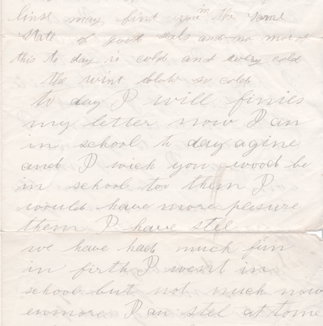 lines may find you the same
state of good and no more
this to day is cold and very cold
the wint blob so cold
to day I will finies
my letter now I am
in school to day agine
and I wich you wood be
in school to them I
would have more plesure
them I have stel
we have had much fun
in firth I wasn't in
school but not much now
enmore I am stel at tome